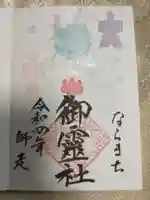 ならまち
御霊社
令和四年
師走